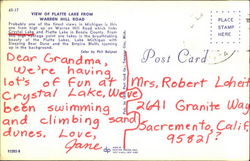 VIEW OF PLATTE LAKE FROM
WARREN HILL ROAD
Probably one of the finest views in Michigan is this
one from high up on Warren Hill Road which links
Crystal Lake and Platte Lake in Benzie County. From
this vantage point one takes in the breathtaking
beauty of the Platte Lakes, Lake Michigan with
Sleeping Bear Dune and the Empire Bluffs looming
up in the background.
Post Card
PLACE
STAMP
HERE
Dear Grandma,
We're having
lots of fun at
Crystal Lake. We've
been swimming
and climbing sand
dunes. Love,
Jane
Mrs. Robert Loheit
2641 Granite Way
Sacramento, Calif.
95821